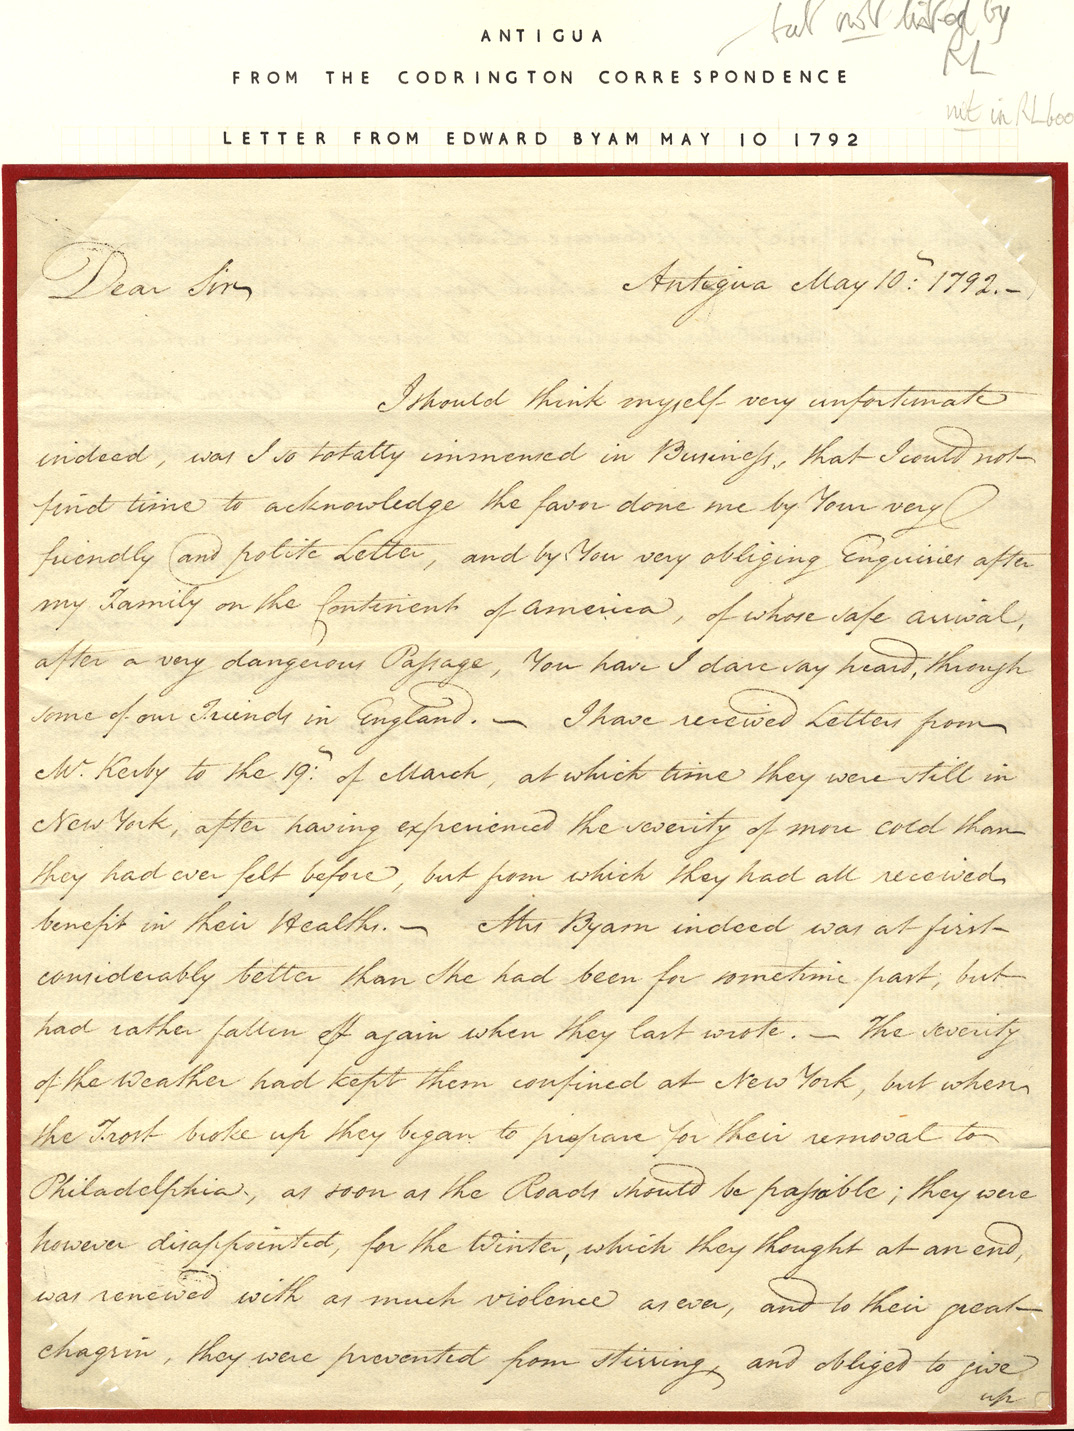 but not listed by
RL
not in RL600
ANTIGUA
FROM THE CODRINGTON CORRESPONDENCE
LETTER FROM EDWARD BYAM MAY 10 1792
Dear Sir
Antigua May 10th: 1792. —
I should think myself very unfortunate
indeed, was I so totally immensed in Business, that I could not
find time to acknowledge the favor done me by Your very
friendly and polite Letter, and by You very obliging Enquiries after
my Family on the Continent of America, of whose safe arrival,
after a very dangerous Passage, You have I dare say heard, through
some of our Friends in England. — I have received Letters from
Mr. Kerby to the 19th: of March, at which time they were still in
New York, after having experienced the severity of more cold than
they had ever felt before, but from which they had all received
benefit in their Healths. — Mrs Byam indeed was at first
considerably better than She had been for sometime past, but
had rather fallen off again when they last wrote. — The severity
of the Weather had kept them confined at New York, but when
the Frost broke up they began to prepare for their removal to
Philadelphia, as soon as the Roads should be passable; they were
however disappointed, for the Winter, which they thought at an end,
was renewed with as much violence as ever, and to their great
chagrin, they were prevented from stirring, and obliged to give
up